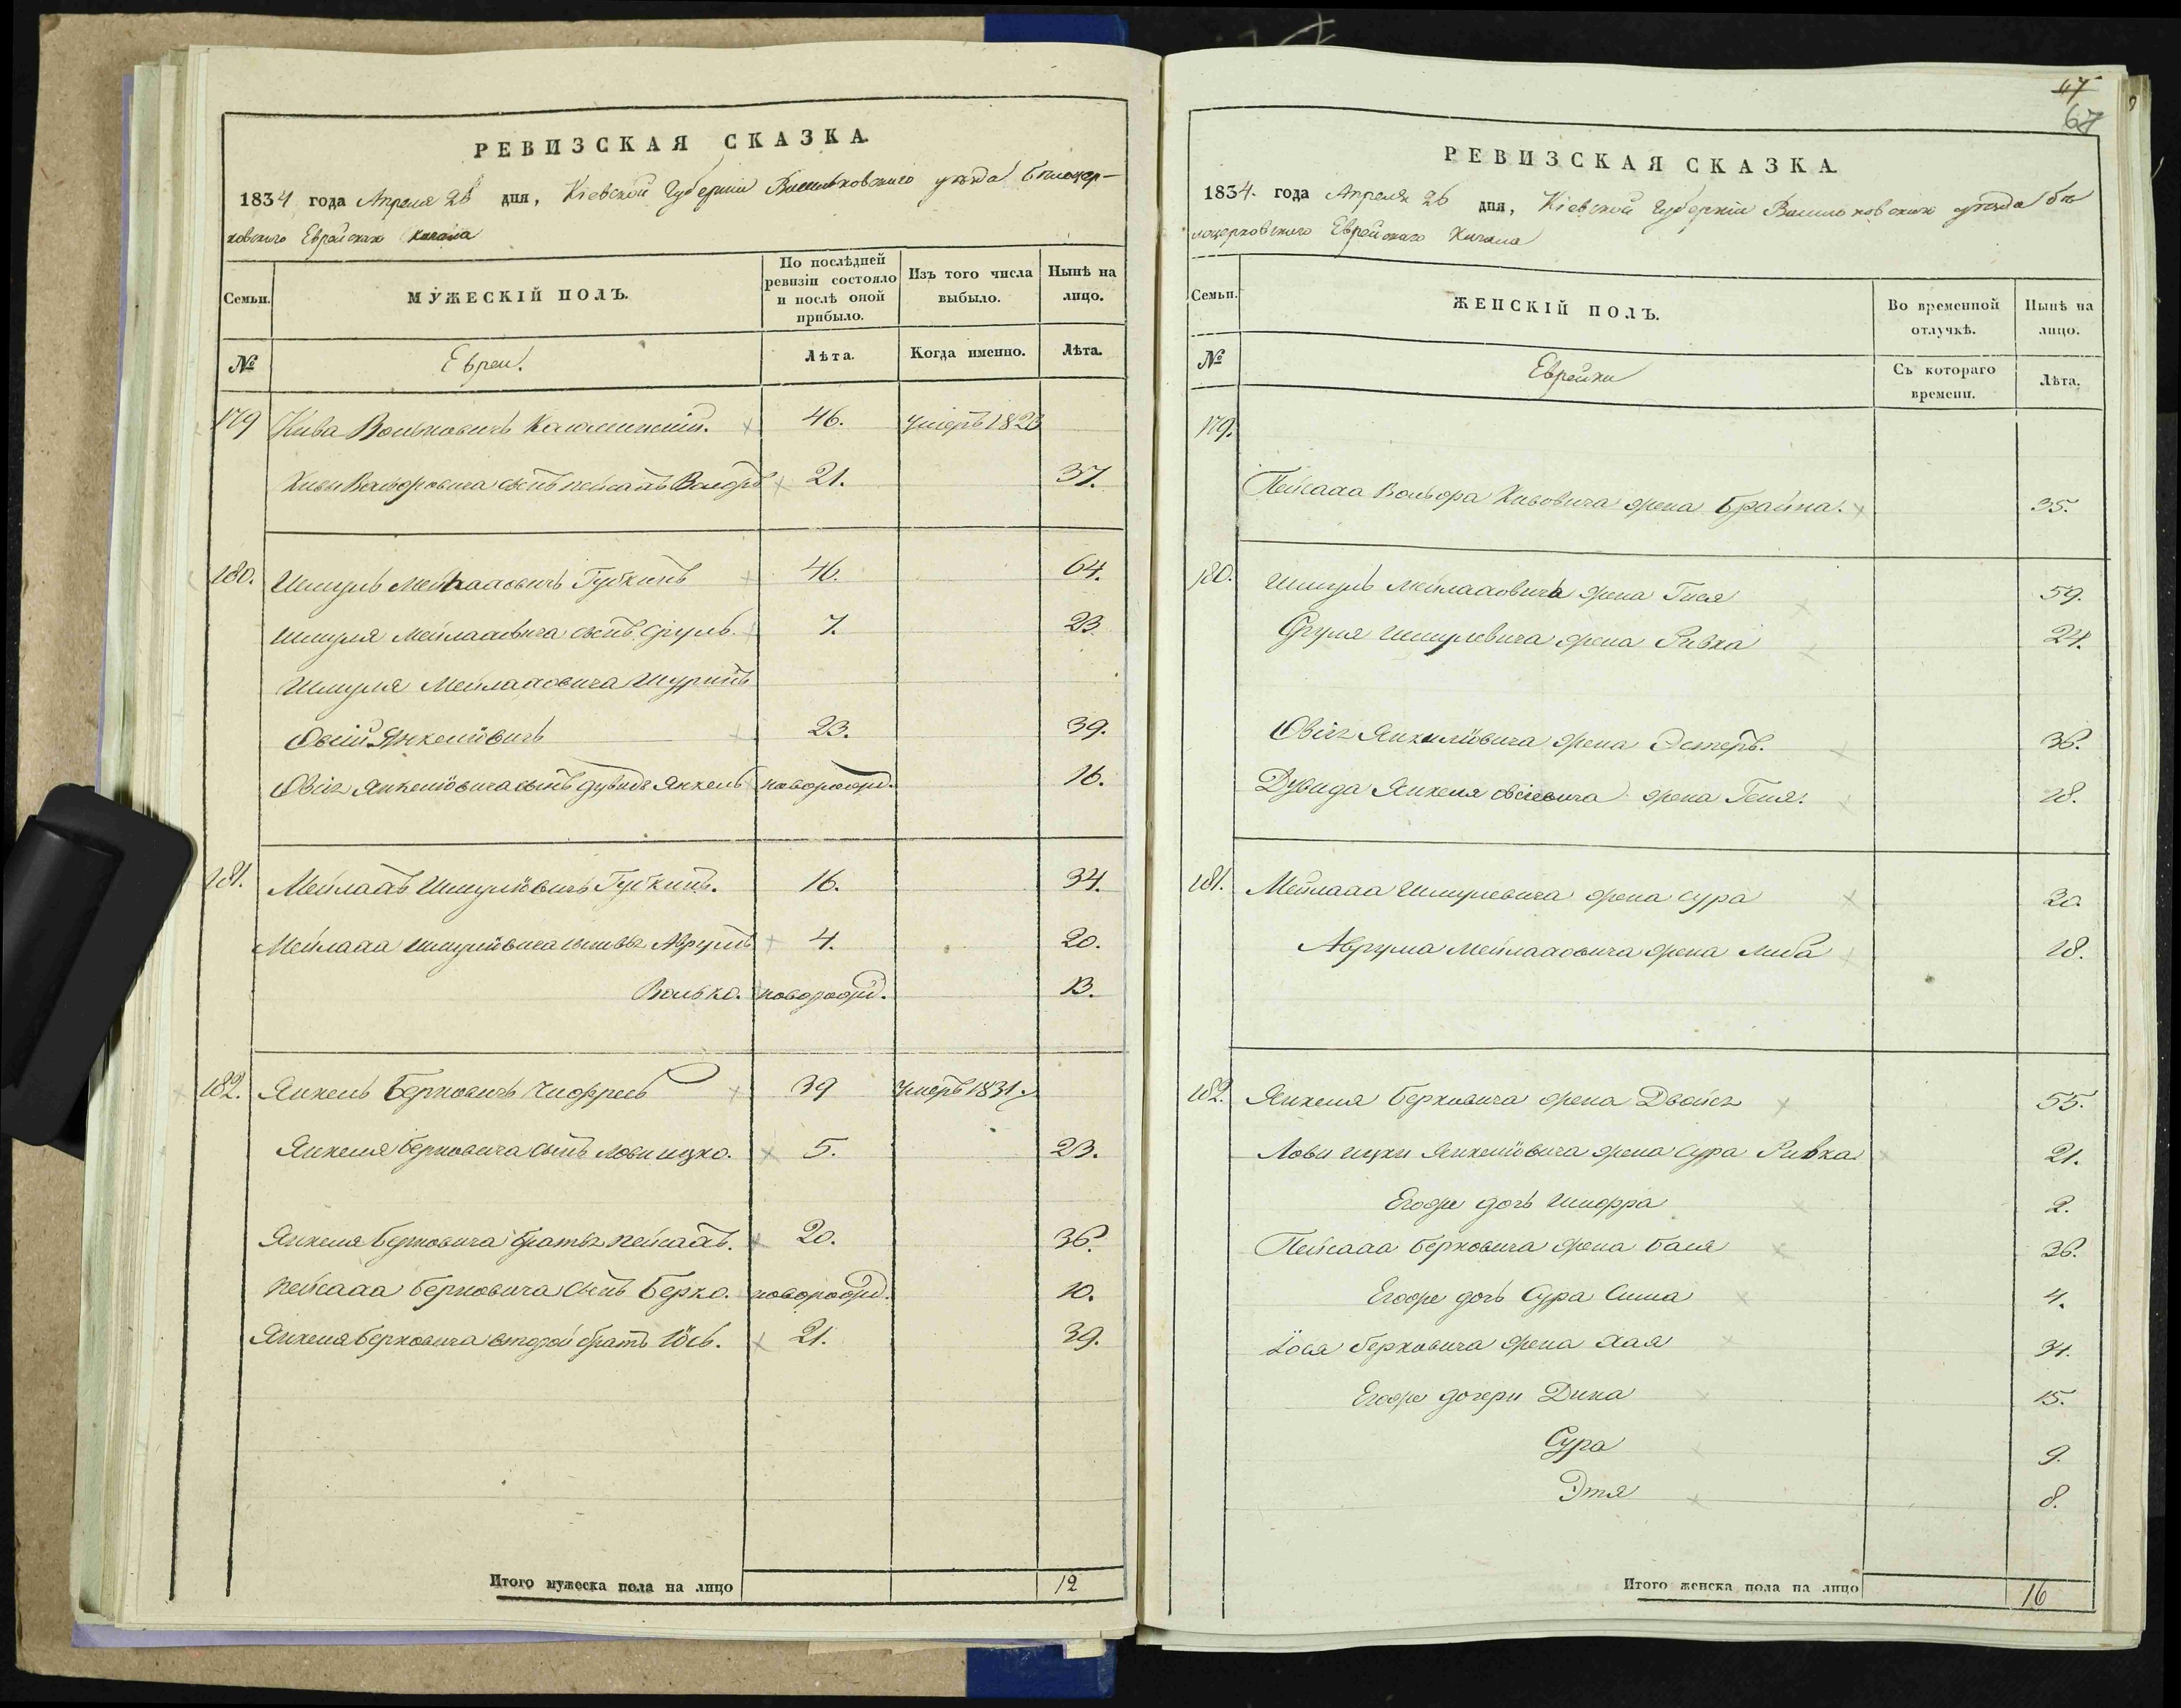 РЕВИЗСКАЯ СКАЗКА.
1834 года Апреля 26 дня, Кіевской Губерніи Васильковскаго уѣзда Бѣлоцер-
ковскаго Еврейскаго Кагала
Семьи.
МУЖЕСКІЙ ПОЛЪ.
По послѣдней ревизіи состояло и послѣ оной прибыло.
Изъ того числа выбыло.
Нынѣ на лицо.
№
Евреи.
Лѣта.
Когда именно.
Лѣта.
179 Кива Вольковичъ 46. умеръ 1823
Кивы сынъ Пейсахъ Вольфъ 21. 37.
180. Шмуль Мейлаховичъ Гуткинъ 46. 64.
Шмуля Мейлаховича сынъ Сруль. 7. 23
Шмуля Мейлаховича Шуринъ
Овсій Янкеліовичъ 23. 39.
Овсія Янкеліовича сынъ Дувидъ Янкель новорожд. 16.
181. Мейлахъ Шмуліовичъ Гуткинъ. 16. 34.
Мейлаха Шмуліовича сыновья Аврумъ 4. 20.
Волько. новорожд. 13.
182. Янкель Берковичъ 39 умеръ 1831.
Янкеля Берковича сынъ Лови Ицко. 5. 23.
Янкеля Берковича братья Пейсахъ. 20. 36.
Пейсаха Берковича сынъ Берко. новорожд. 10.
Янкеля Берковича второй братъ Іось. 21. 39.
Итого мужеска пола на лицо 12
67
67
РЕВИЗСКАЯ СКАЗКА.
1834. года Апреля 26 дня, Кіевской Губерніи Васильковскаго уѣзда Бѣ
лоцерковскаго Еврейскаго Кагала
Семьи.
ЖЕНСКІЙ ПОЛЪ.
Во временной отлучкѣ.
Нынѣ на лицо.
№
Еврейки
Съ котораго времени.
Лѣта.
179.
Пейсаха Вольфа Кивовича жена Брайна. 35.
180. Шмуль Мейлаховича жена Гися 59.
Сруля Шмулевича жена Ривка 24.
Овсія Янкеліовича жена Эстеръ. 36.
Дувида Янкеля Овсіевича жена Геня. 18.
181. Мейлаха Шмулевича жена Сура 30
Аврума Мейлаховича жена Либа 18.
182. Янкеля Берковича жена Двойся 55.
Лови Ицки Янкеліовича жена Сура Ривка 21.
Егоже дочь Шифра 2.
Пейсаха Берковича жена Бася 36.
Егоже дочь Сура Сима 4.
Іося Берковича жена Хая 34.
Егоже дочери Дина 15.
Сура 9.
Этя 8.
Итого женска пола на лицо 16